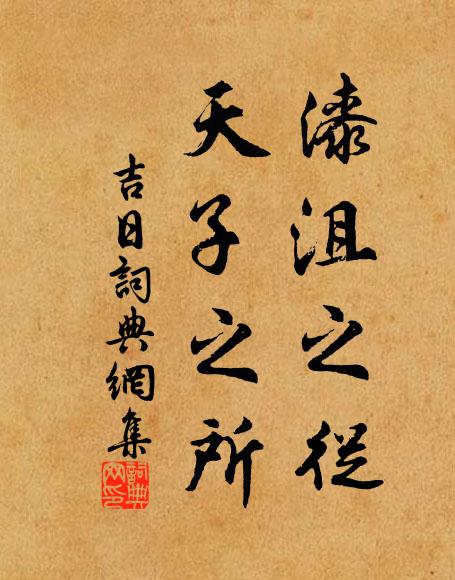 漆沮之從
天子之所
吉日詞典網集
詞典
网印